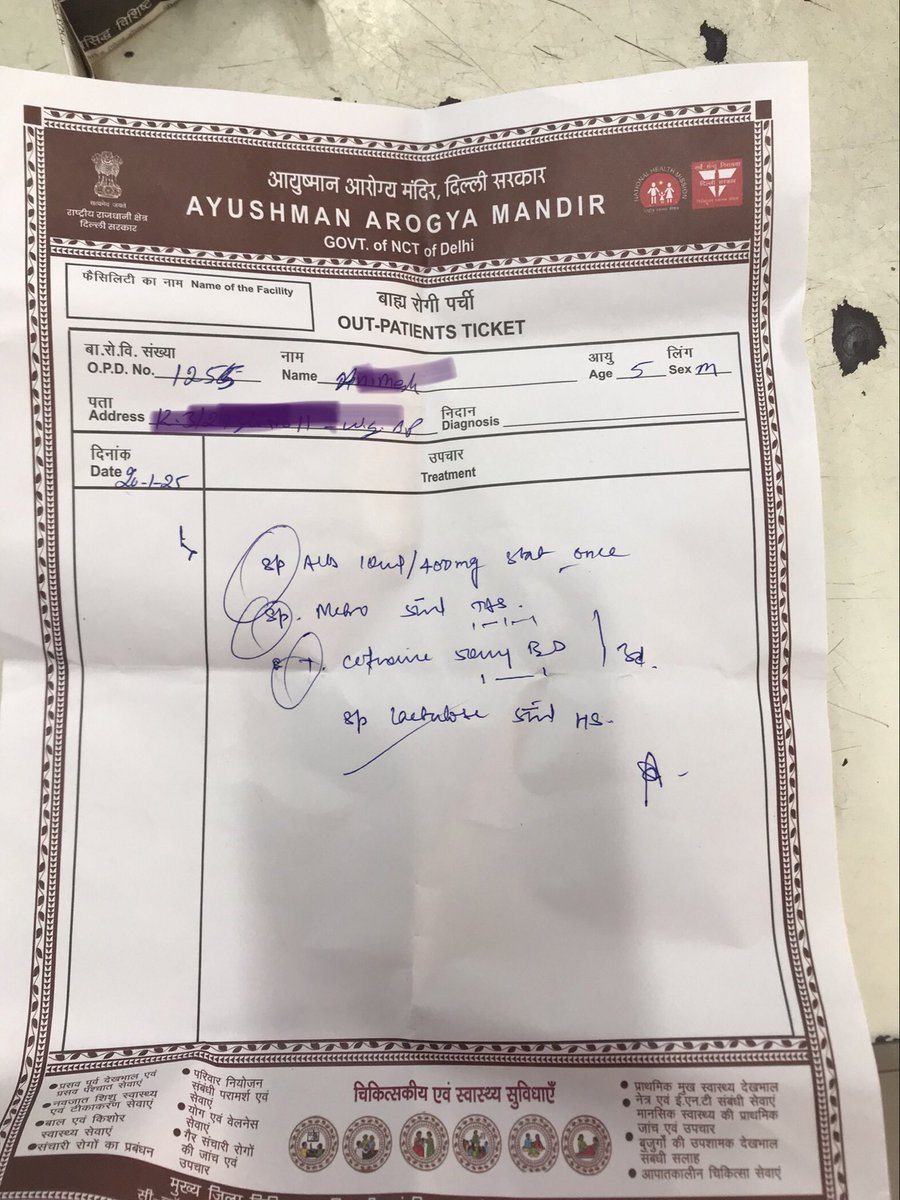 सिद्ध विशिष्ट
आयुष्मान आरोग्य मंदिर, दिल्ली सरकार
AYUSHMAN AROGYA MANDIR
GOVT. of NCT of Delhi
सत्यमेव जयते
राष्ट्रीय राजधानी क्षेत्र
दिल्ली सरकार
NATIONAL HEALTH MISSION
फैसिलिटी का नाम Name of the Facility
बाह्य रोगी पर्ची
OUT-PATIENTS TICKET
बा.रो.वि. संख्या
O.P.D. No. 1255
नाम
Name
आयु
Age 5
लिंग
Sex M
पता
Address
निदान
Diagnosis
दिनांक
Date 20-1-25
उपचार
Treatment
Sp Alb 10ml/400mg stat once
Sp. Metro 5ml TDS.
T. 50mg BD 3d.
Sp Lactulose 5ml HS.
प्रसव पूर्व देखभाल एवं
प्रसव पश्चात सेवाएं
नवजात शिशु स्वास्थ्य
एवं टीकाकरण सेवाएं
बाल एवं किशोर
स्वास्थ्य सेवाएं
संचारी रोगों का प्रबंधन
परिवार नियोजन
संबंधी परामर्श एवं
सेवाएं
योग एवं वेलनेस
सेवाएं
गैर संचारी रोगों
की जांच एवं
उपचार
चिकित्सकीय एवं स्वास्थ्य सुविधाएँ
प्राथमिक मुख स्वास्थ्य देखभाल
नेत्र एवं ई.एन.टी संबंधी सेवाएं
मानसिक स्वास्थ्य की प्राथमिक
जांच एवं उपचार
बुजुर्गों की उपशामक देखभाल
संबंधी सलाह
आपातकालीन चिकित्सा सेवाएं
मुख्य जिला